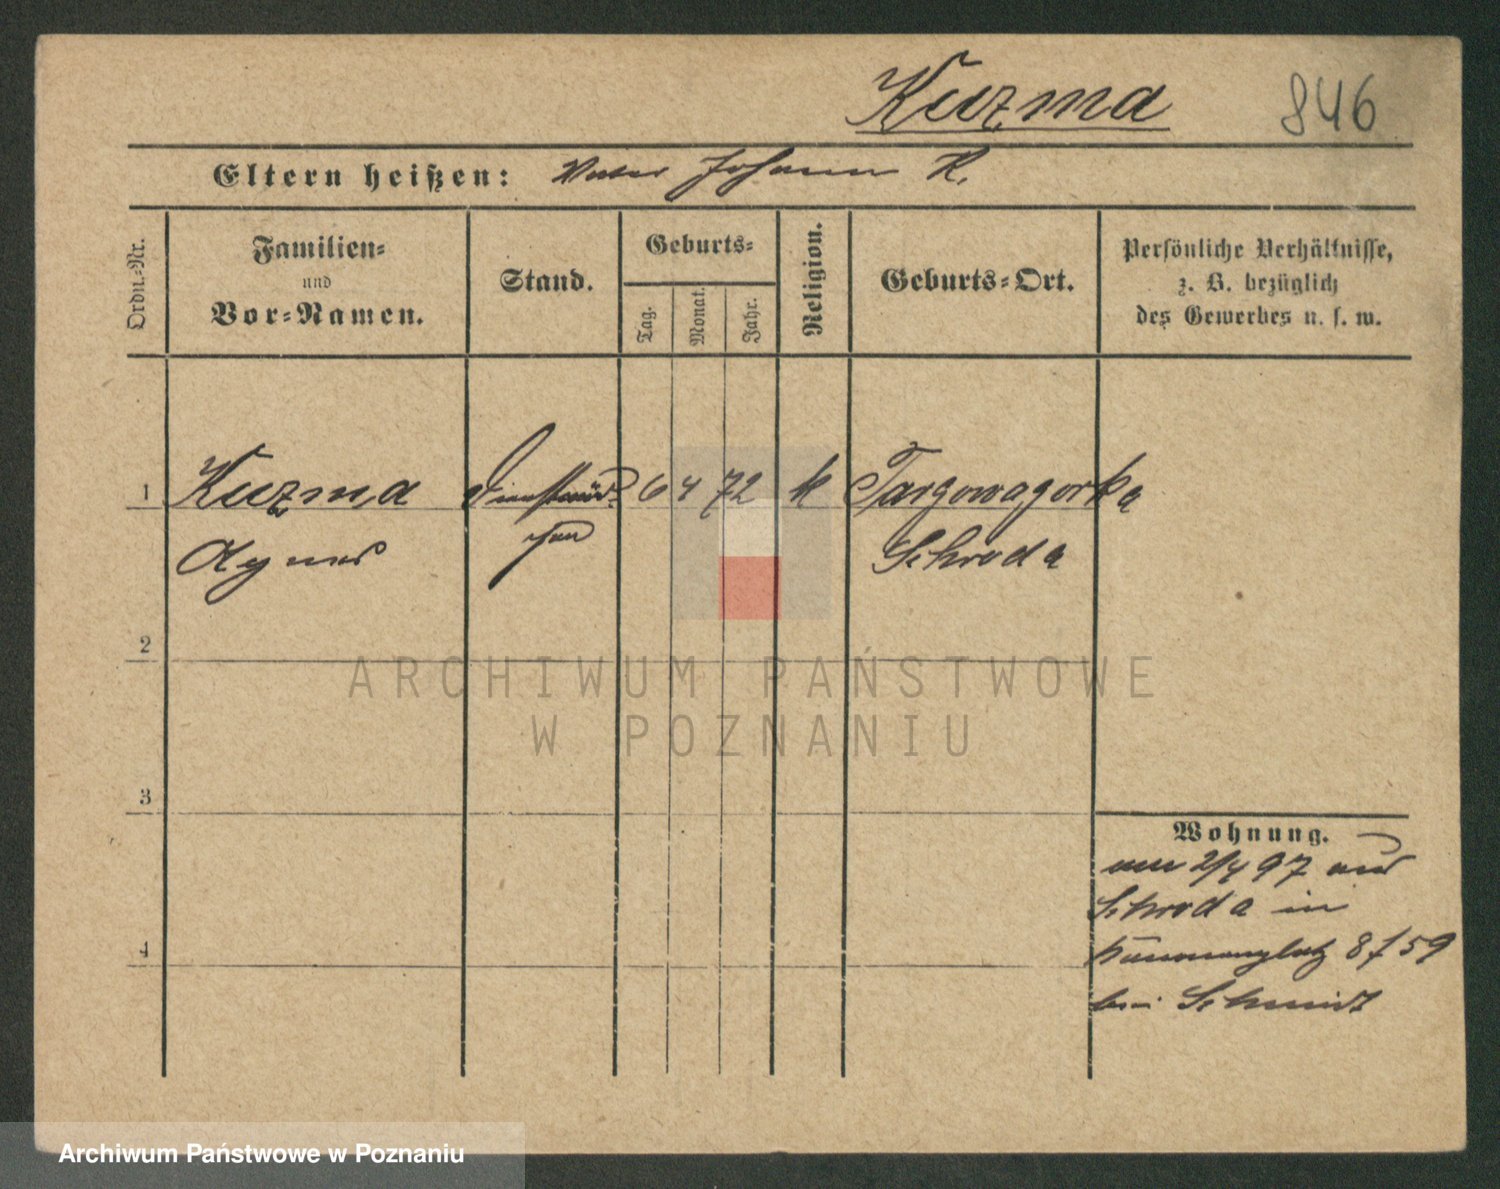 Kuzma 846
Eltern heißen: Vater Johann K.
Ordn.-Nr.
Familien-
und
Vor-Namen.
Stand.
Geburts-
Tag.
Monat.
Jahr.
Religion.
Geburts-Ort.
Persönliche Verhältnisse,
z. B. bezüglich
des Gewerbes u. s. w.
1 Kuzma Dienstmäd- 6 4 72 k Targowagorka
Agnes chen Schroda
2
ARCHIWUM PAŃSTWOWE
W POZNANIU
3
Wohnung.
am 2/4 97 aus
Schroda in
8 f 59
bei Schmidt
4
Archiwum Państwowe w Poznaniu